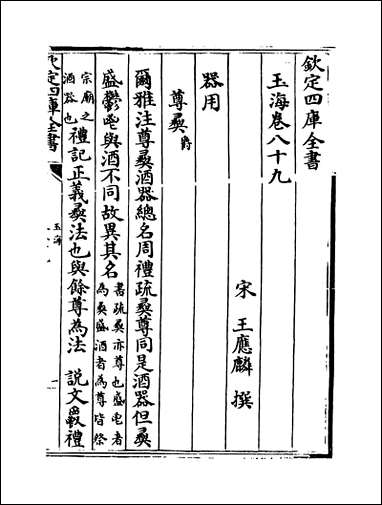 欽定四庫全書
玉海卷八十九
宋 王應麟 撰
器用
尊彞 爵
爾雅注尊彞酒器總名周禮疏彞尊同是酒器但彞
盛鬱鬯與酒不同故異其名 書疏彞亦尊也盛鬯者
為彞盛酒者為尊皆祭
宗廟之
酒器也 禮記正義彞法也與餘尊為法 說文 禮
欽定四庫全書
玉海